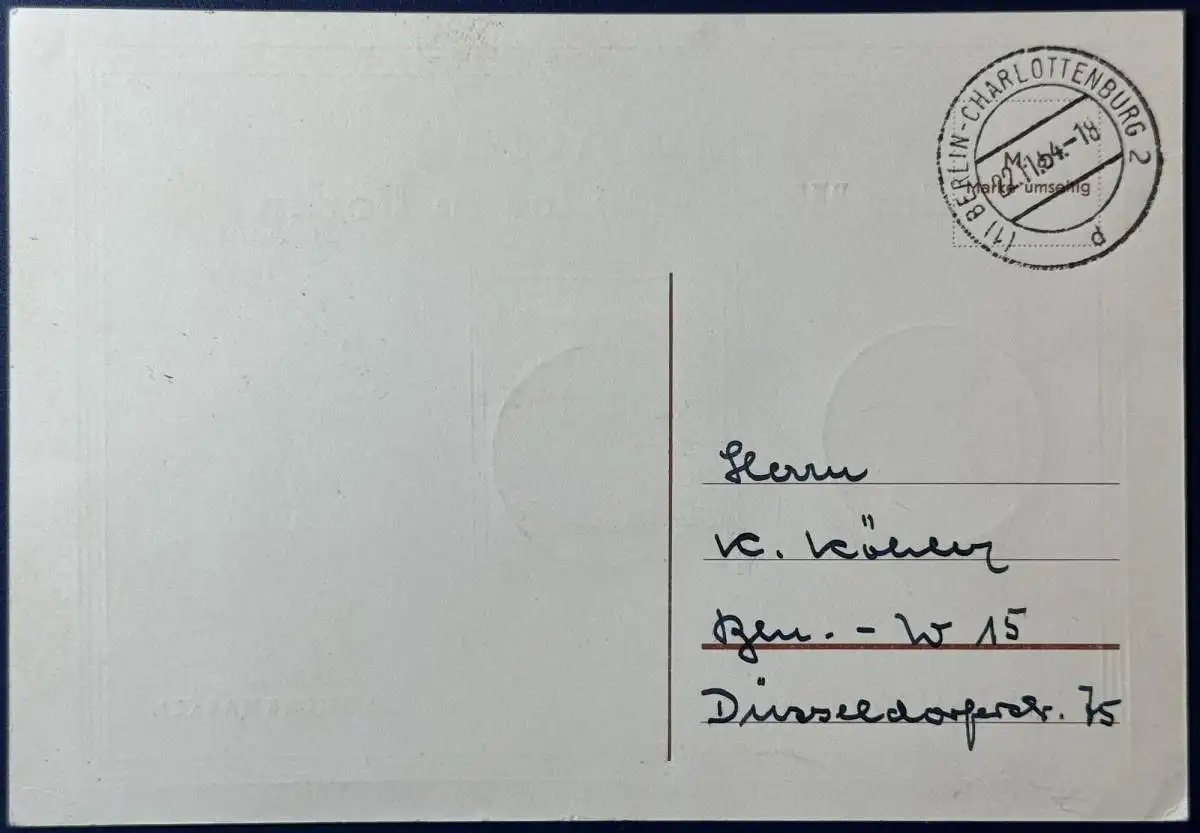 (1) BERLIN-CHARLOTTENBURG 2
22.11.54.-18
p
Marke umseitig
Herrn
K. Köhler
Bln. - W 15
Düsseldorferstr. 75